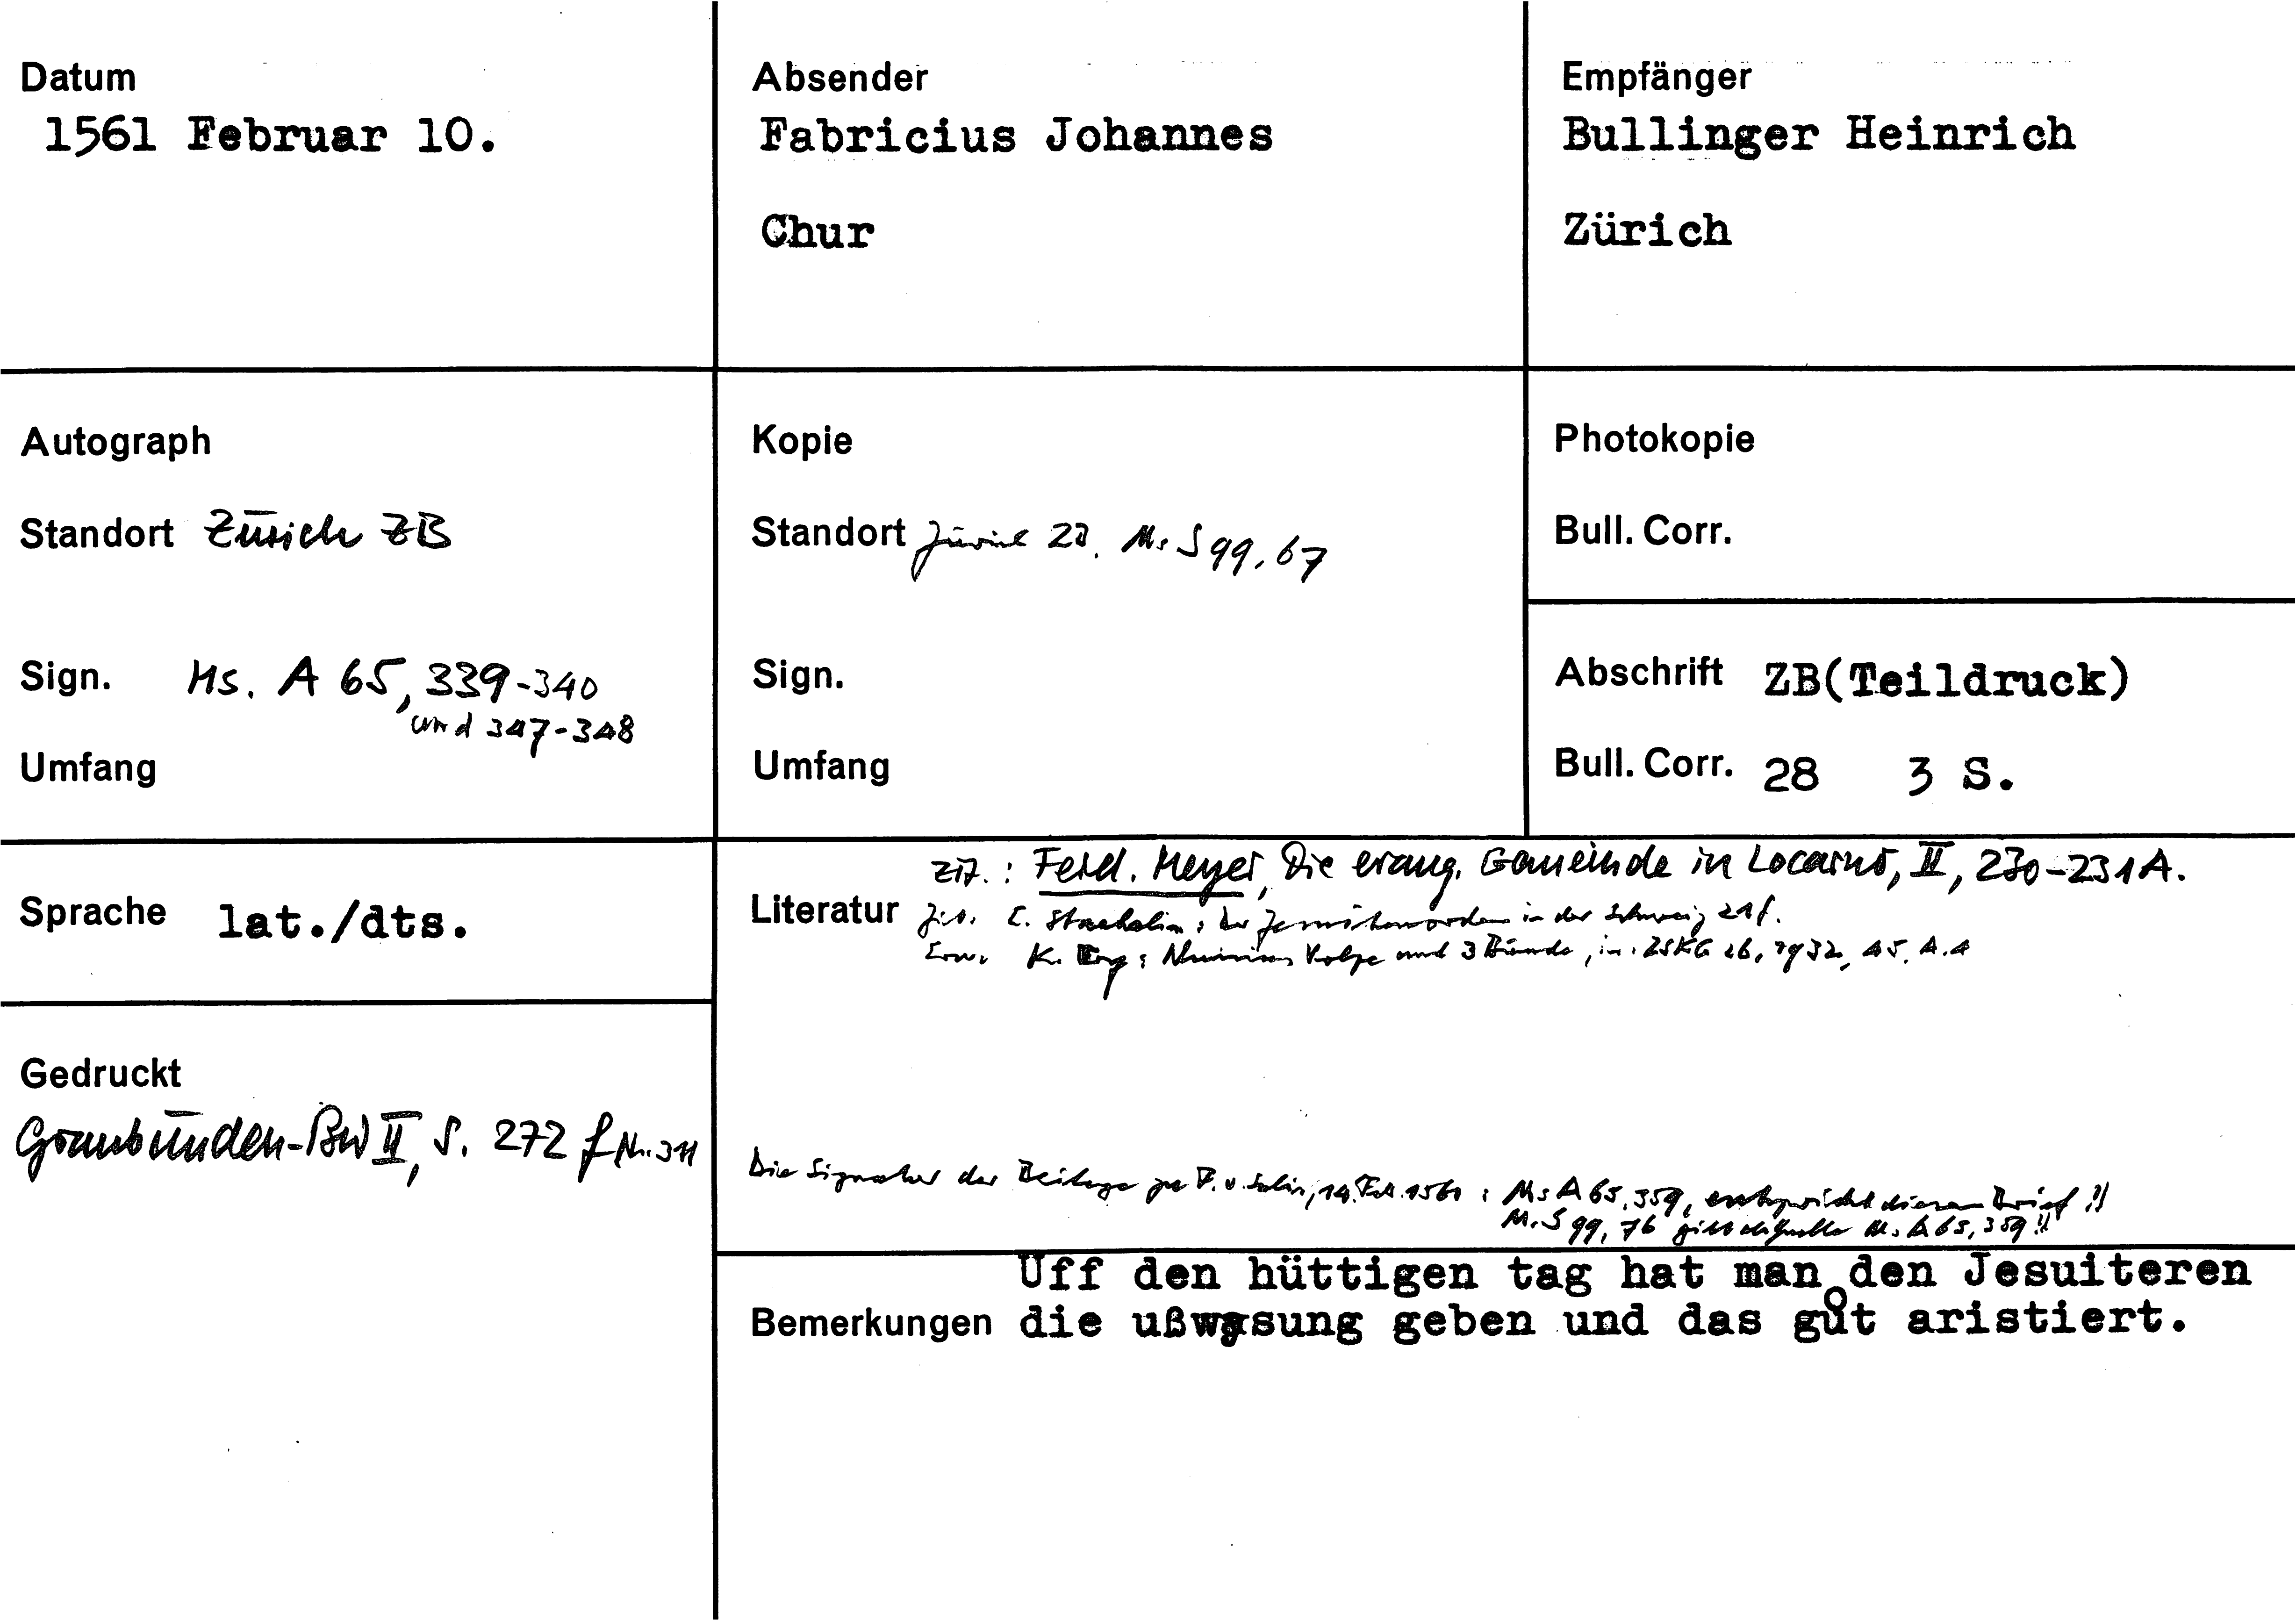 Datum
1561 Februar 10.
Absender
Fabricius Johannes
Chur
Empfänger
Bullinger Heinrich
Zürich
Autograph
Standort Zürich ZB
Sign. Ms. A 65, 339-340
und 347-348
Umfang
Kopie
Standort Zürich ZB. Ms S 99, 67
Sign.
Umfang
Photokopie
Bull. Corr.
Abschrift ZB(Teildruck)
Bull. Corr. 28 3 S.
Sprache lat./dts.
zit.: Ferd. Meyer, Die evang. Gemeinde in Locarno, II, 230-231 A.
Literatur zit. E. Staehelin: der Jesuitenorden in der Schweiz 21f.
Erw. K. : Volpe und 3 Bünde, in: ZSKG 26, 1932, 45, A.4
Gedruckt
Graubünden-BW II, S. 272 f Nr. 311
Die Signatur der Beilage zu F. v. Salis, 14. Feb. 1561: Ms A 65, 359, entspricht diesem Brief!!
Ms S 99, 76 gibt als Quelle Ms A 65, 359!!
Uff den hüttigen tag hat man den Jesuiteren
Bemerkungen die ußwysung geben und das gůt aristiert.